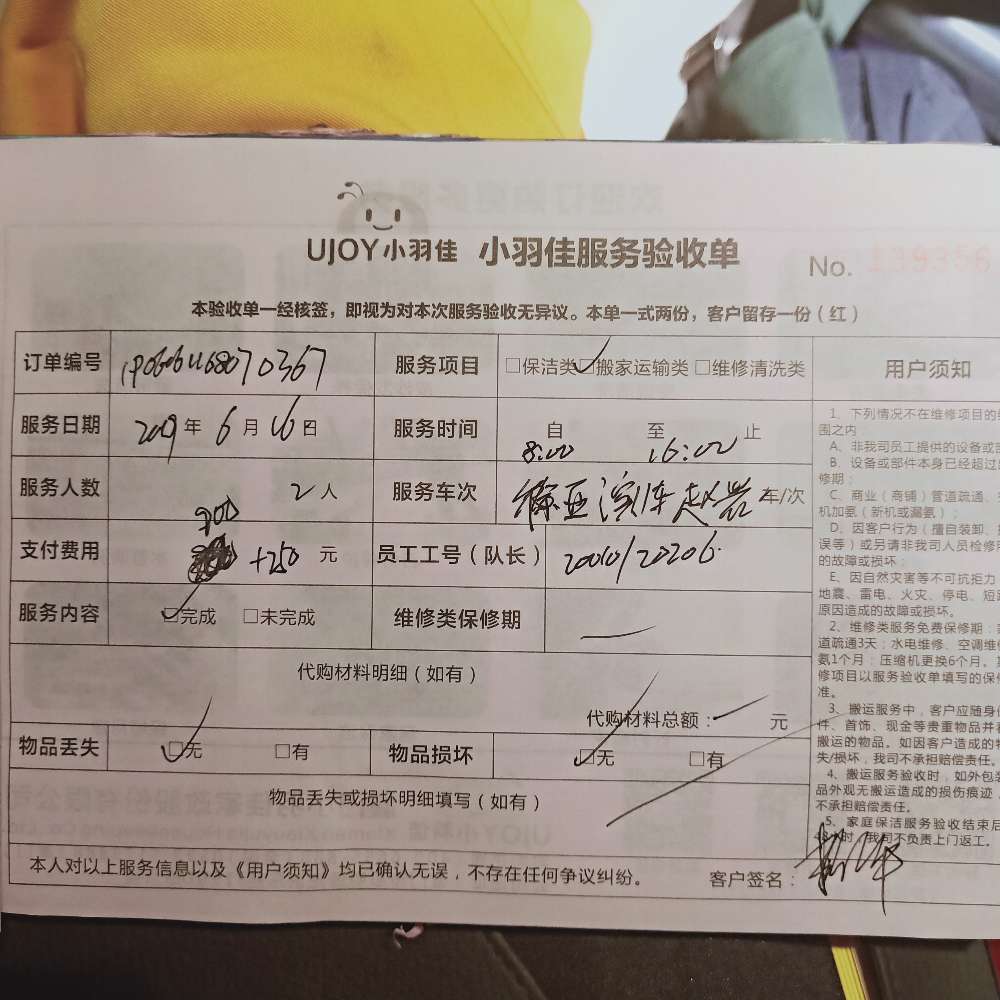 UJOY小羽佳 小羽佳服务验收单 No. 139356
本验收单一经核签，即视为对本次服务验收无异议。本单一式两份，客户留存一份（红）
订单编号 服务项目 □保洁类 ☑搬家运输类 □维修清洗类
服务日期 2019年6月16日 服务时间 自8:00至16:00止
服务人数 2人 服务车次 车/次
支付费用 900 +250 元 员工工号（队长） 20010/20206
服务内容 ☑完成 □未完成 维修类保修期 —
代购材料明细（如有）
代购材料总额：— 元
物品丢失 ☑无 □有 物品损坏 ☑无 □有
物品丢失或损坏明细填写（如有）
本人对以上服务信息以及《用户须知》均已确认无误，不存在任何争议纠纷。 客户签名：
用户须知
1、下列情况不在维修项目的
围之内
A、非我司员工提供的设备或
B、设备或部件本身已经超过
修期；
C、商业（商铺）管道疏通、
机加氨（新机或漏氨）；
D、因客户行为（擅自装卸、
误等）或另请非我司人员检修
的故障或损坏；
E、因自然灾害等不可抗拒力
地震、雷电、火灾、停电、短
原因造成的故障或损坏。
2、维修类服务免费保修期：
道疏通3天；水电维修、空调维
氨1个月；压缩机更换6个月。
修项目以服务验收单填写的保
准。
3、搬运服务中，客户应随身
件、首饰、现金等贵重物品并
搬运的物品。如因客户造成的
失/损坏，我司不承担赔偿责任。
4、搬运服务验收时，如外包
品外观无搬运造成的损伤痕迹，
不承担赔偿责任。
5、家庭保洁服务验收结束后
48小时，我司不负责上门返工。